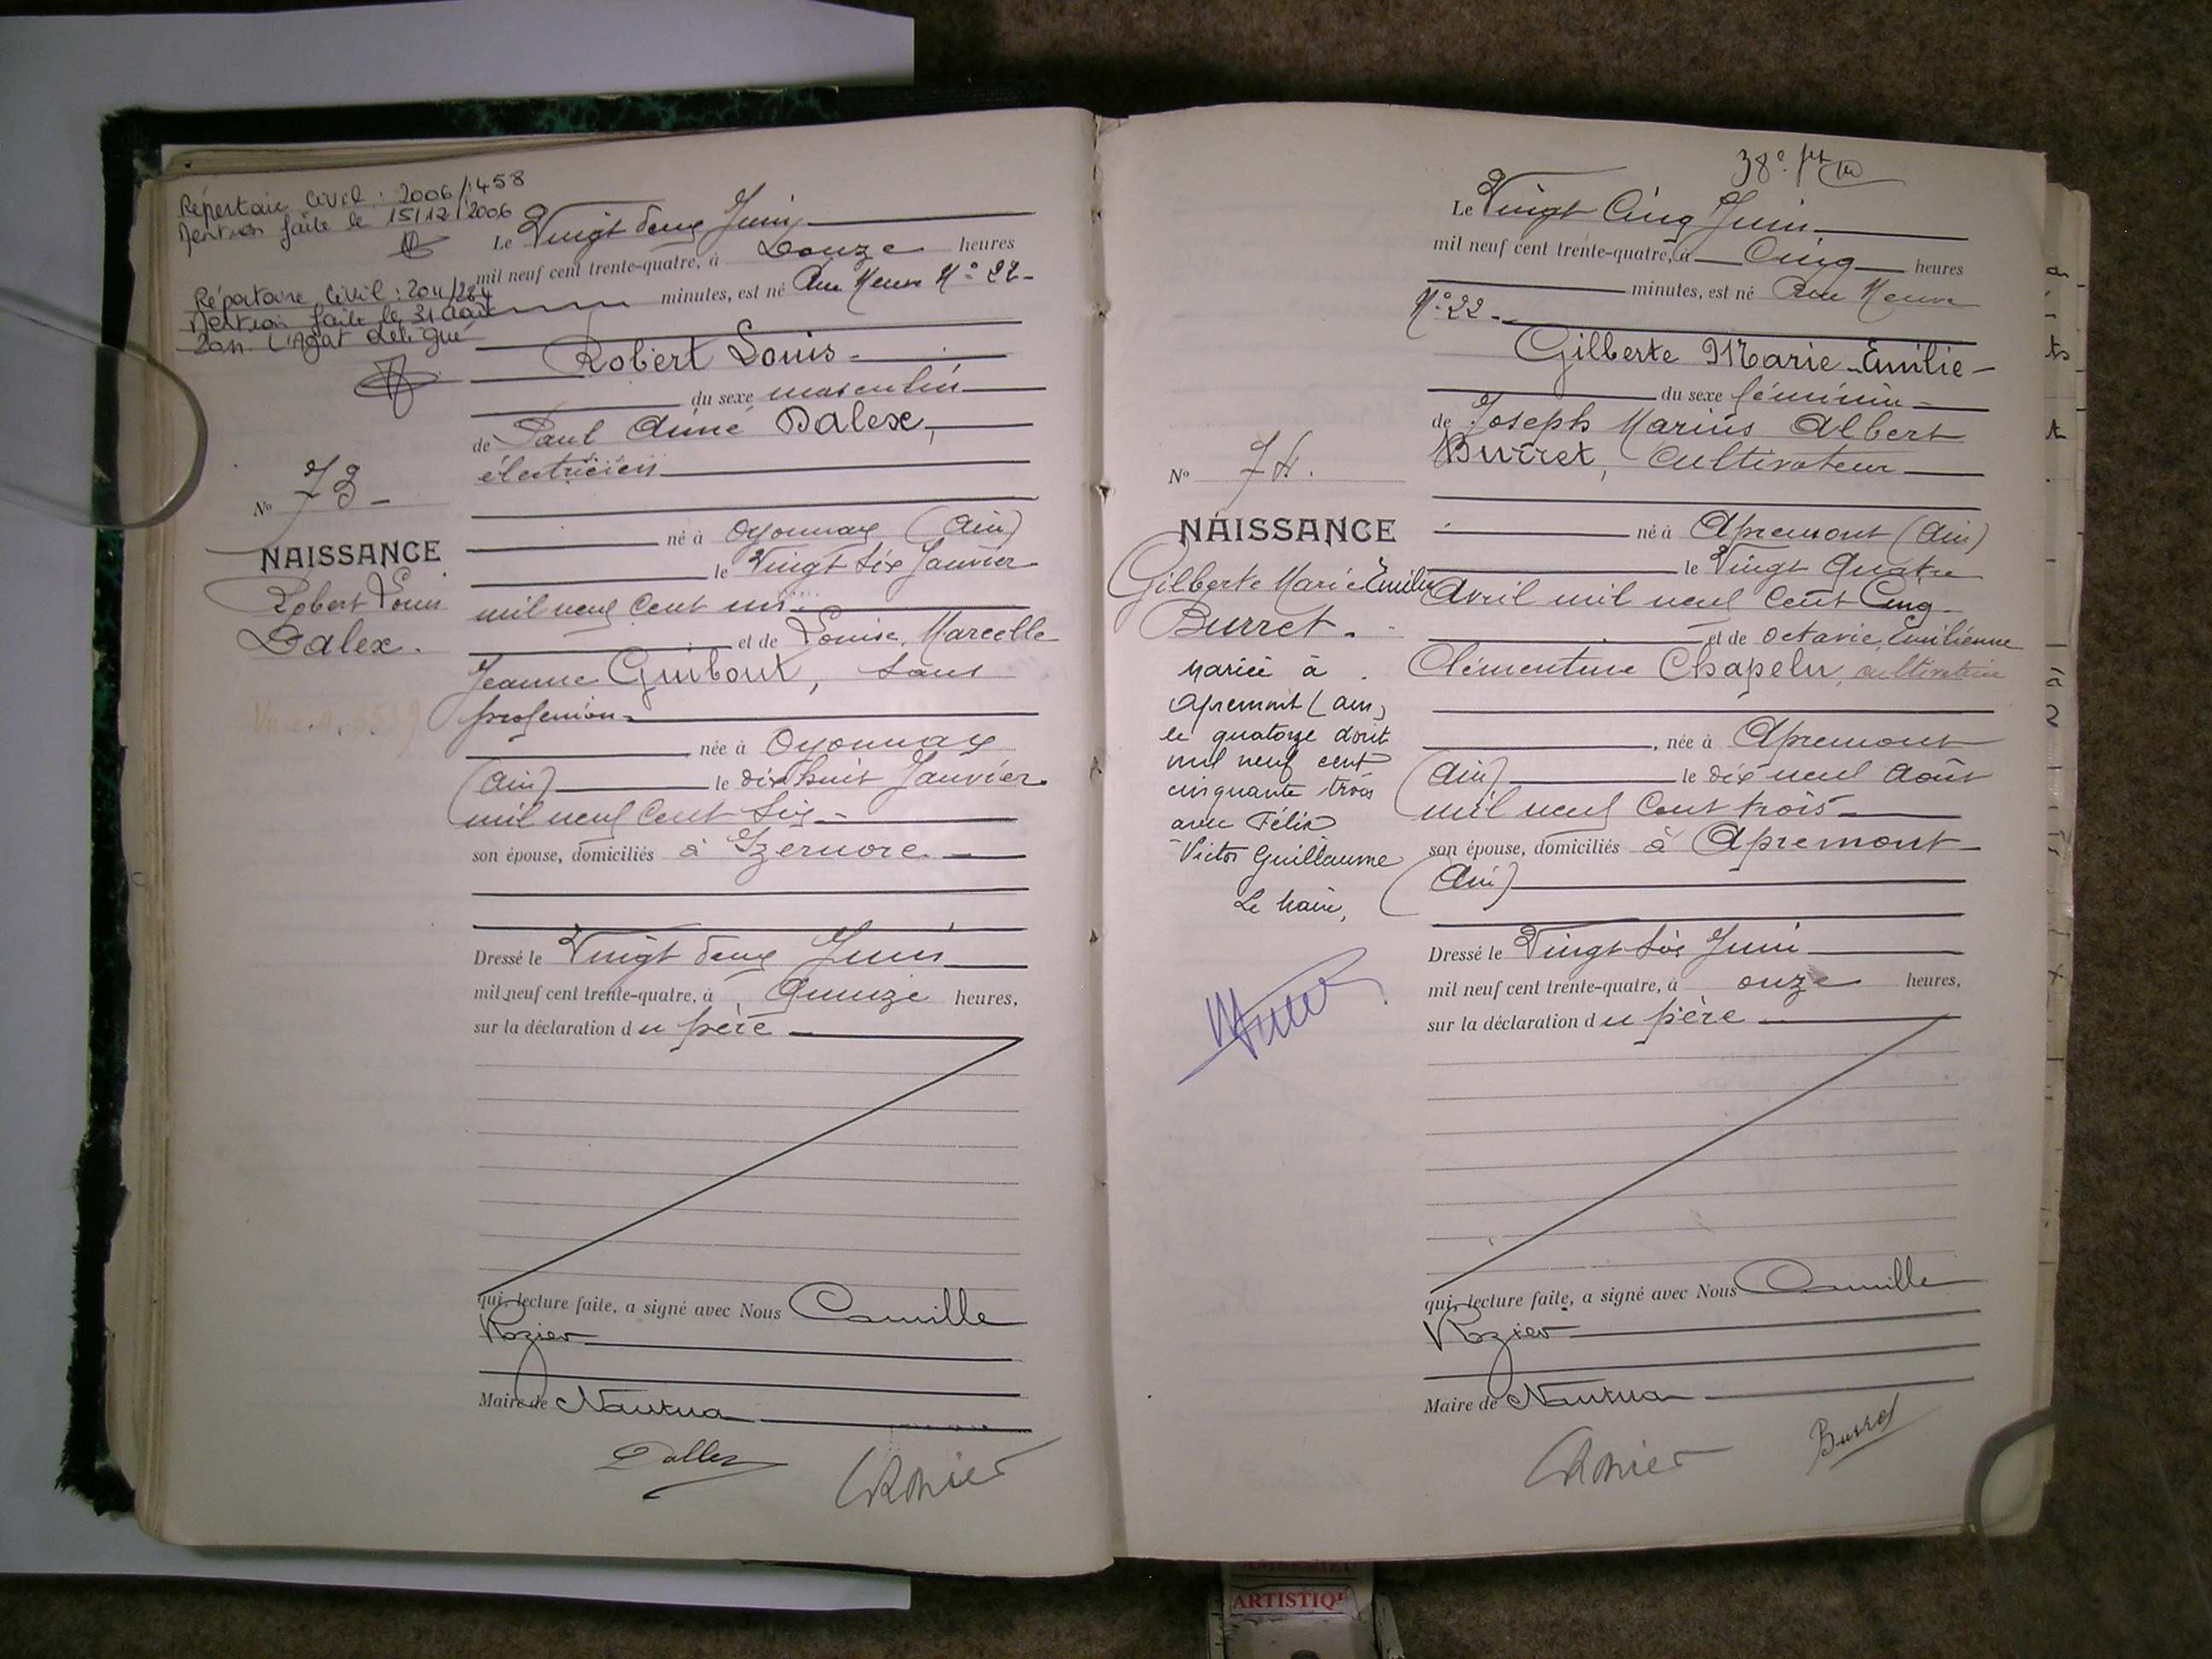 Répertoire Civil : 2006/1458
Mention faite le 15/12/2006
Répertoire Civil : 2011/284
Mention faite le 31 Août
2011 L'Agent délégué
Le Vingt deux Juin
mil neuf cent trente-quatre, à Douze heures
minutes, est né Rue Neuve N° 22-
Robert Louis-
du sexe masculin
de Paul Aimé Dalex,
électricien
né à Oyonnax (Ain)
le Vingt Six Janvier
mil neuf Cent un
et de Louise, Marcelle
Jeanne Guibout, Sans
profession-
née à Oyonnax
(Ain) le dix huit Janvier
mil neuf Cent Six-
son épouse, domiciliés à Izernore.
Dressé le Vingt deux Juin
mil neuf cent trente-quatre, à Quinze heures,
sur la déclaration du père
qui, lecture faite, a signé avec Nous Camille
Rozier
Maire de Nantua
Dallex
CRozier
No 73-
NAISSANCE
Robert Louis
Dalex.
38e
Le Vingt Cinq Juin
mil neuf cent trente-quatre, à Cinq heures
minutes, est né Rue Neuve
N° 22-
Gilberte Marie-Emilie-
du sexe féminin-
de Joseph Marius Albert
Burret, Cultivateur
né à Apremont (Ain)
le Vingt Quatre
Avril mil neuf Cent Cinq-
et de Octavie, Emilienne
Clémentine Chapelu, cultivatrice
née à Apremont
(Ain) le dix neuf Août
mil neuf Cent trois-
son épouse, domiciliés à Apremont
(Ain)
Dressé le Vingt Six Juin
mil neuf cent trente-quatre, à onze heures,
sur la déclaration du père
qui, lecture faite, a signé avec Nous Camille
Rozier
Maire de Nantua
CRozier
Burret
No 74.
NAISSANCE
Gilberte Marie Emilie
Burret.
Mariée à
Apremont (Ain)
le quatorze Août
mil neuf cent
cinquante trois
avec Félix
Victor Guillaume
Le Maire,
ARTISTIQ